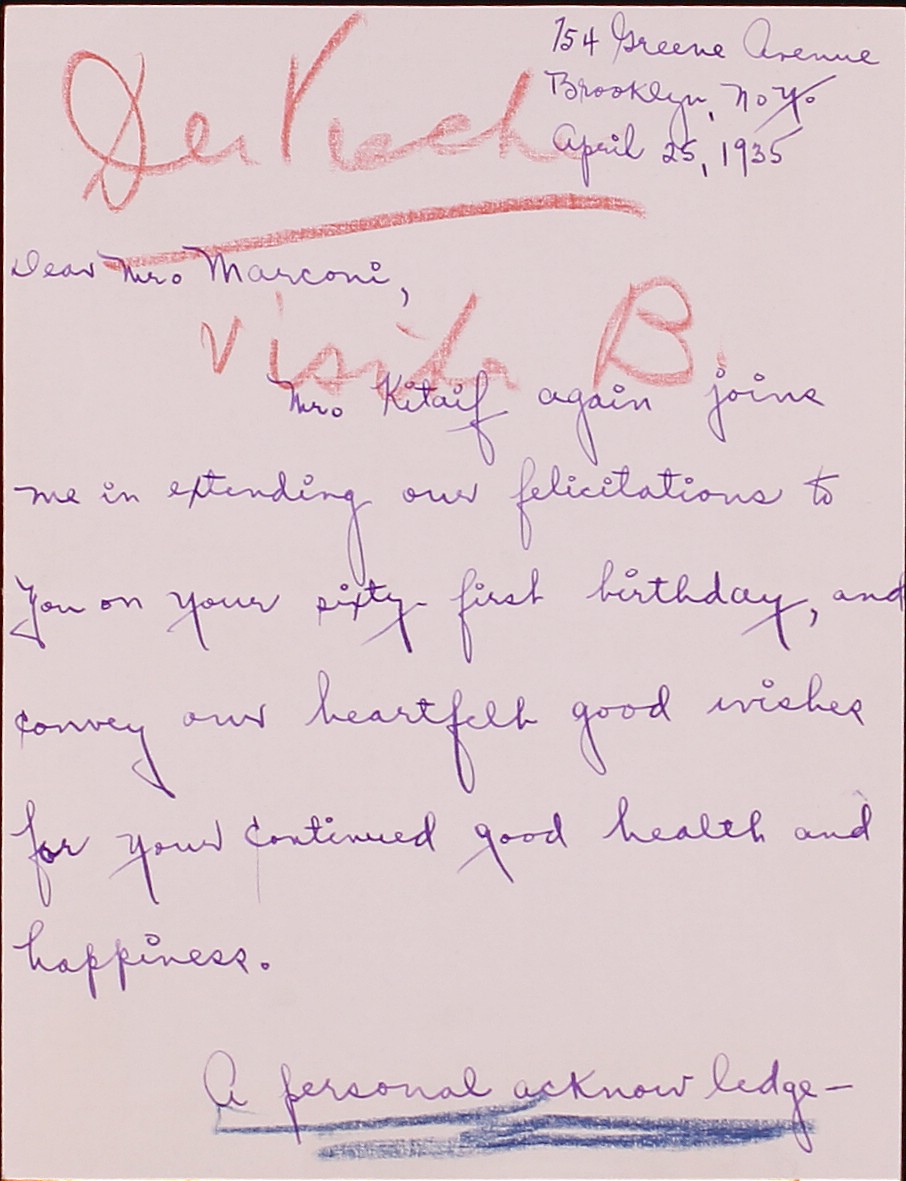 754 Greene Avenue
Brooklyn, No Y.
April 25, 1935
Dear Mr. Marconi,
Visita B.
Mr. Kitaif again joins
me in extending our felicitations to
you on your sixty-first birthday, and
convey our heartfelt good wishes
for your continued good health and
happiness.
A personal acknowledge-